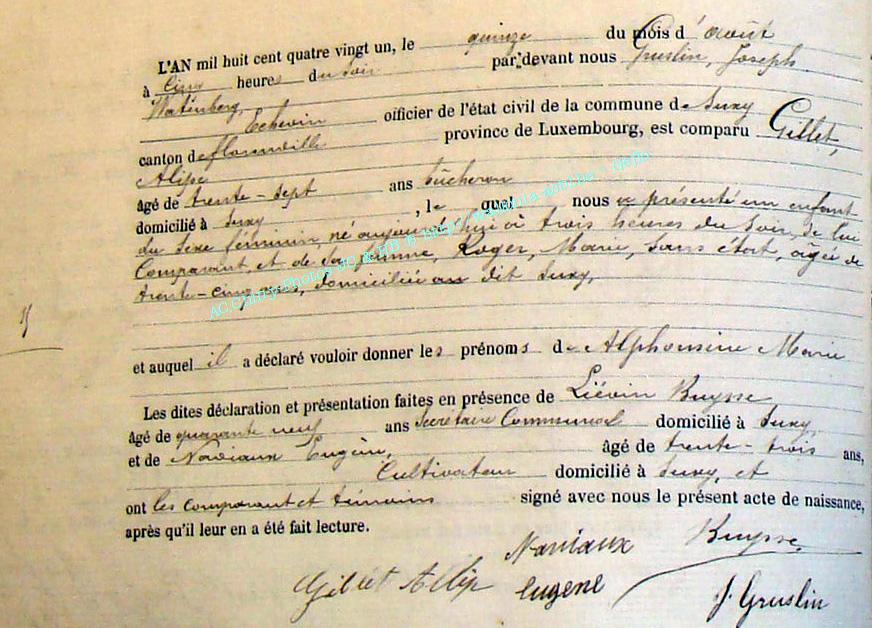 L'AN mil huit cent quatre vingt un, le quinze du mois d'août
à Cinq heures du soir par devant nous Gruslin, Joseph
Echevin officier de l'état civil de la commune de Suxy
canton de florenville province de Luxembourg, est comparu Gillet,
Alipe
âgé de trente-sept ans bûcheron
domicilié à Suxy, le quel nous a présenté un enfant
du sexe féminin, né aujourd'hui à trois heures du Soir, de lui
Comparant, et de sa femme, Roger, Marie, Sans état, âgée de
trente-cinq ans, domiciliée au dit Suxy,
et auquel il a déclaré vouloir donner les prénoms de Alphonsine Marie
Les dites déclaration et présentation faites en présence de Liévin Buysse
âgé de quarante neuf ans Secrétaire Communal domicilié à Suxy
et de Naviaux Eugène, âgé de trente-trois ans,
Cultivateur domicilié à Suxy, et
ont les comparant et témoins signé avec nous le présent acte de naissance,
après qu'il leur en a été fait lecture.
Naviaux Buysse
Gillet Alip eugene J. Gruslin